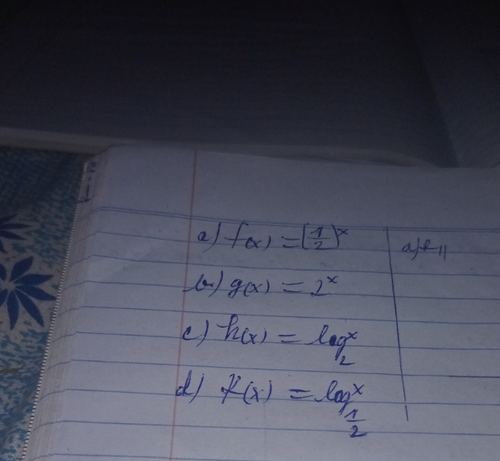 a) f(x) = (1/2)^x
b) g(x) = 2^x
c) h(x) = log_2^x
d) k(x) = log_{1/2}^x